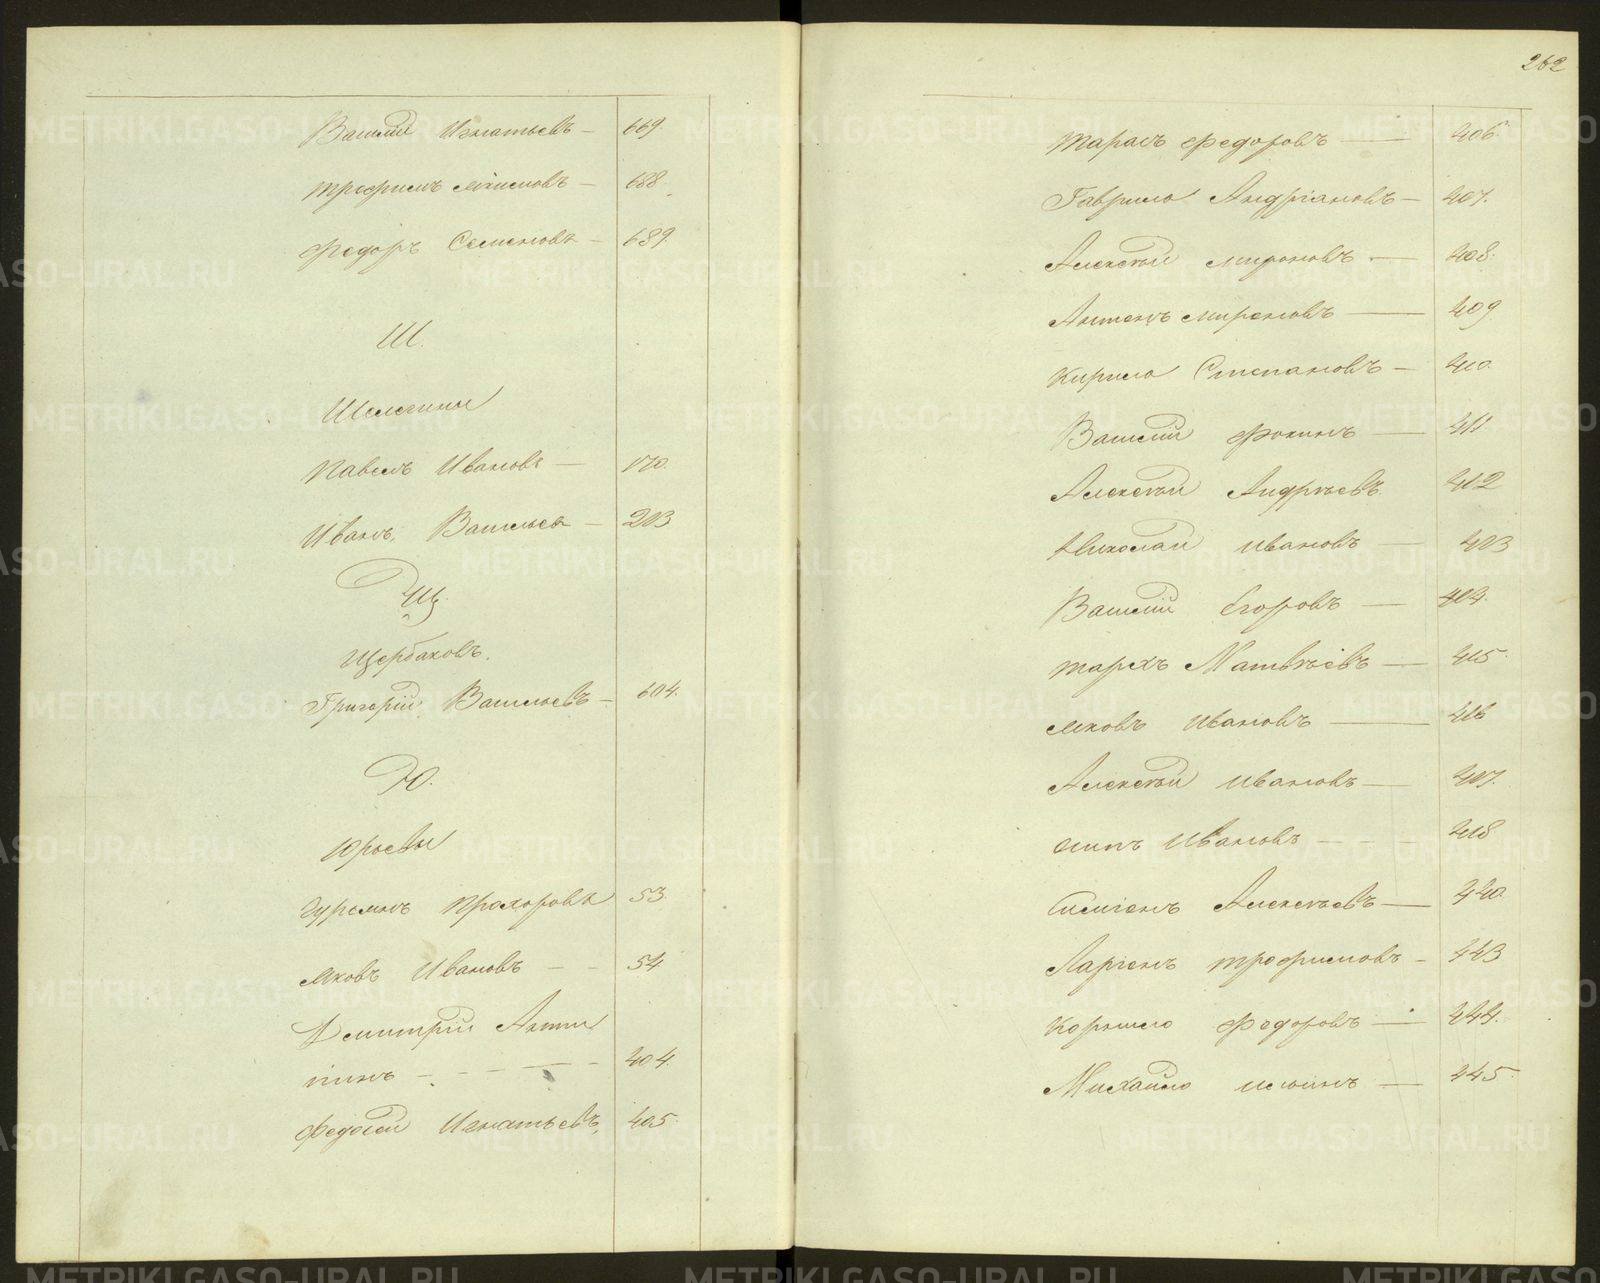 Василій Игнатьевъ — 669.
Трофимъ Якимовъ — 688
Федоръ Семеновъ — 689.
Ш.
Шелегины
Павелъ Ивановъ — 170.
Иванъ Васильев — 203
Щ.
Щербаковъ.
Григорій Васильевъ — 604.
Ю.
Юрьевы
Гурьянъ Прохоровъ 53.
Яковъ Ивановъ — — 54
Дмитрій Анти
пинъ — — — — — 404.
Федосѣй Игнатьевъ, 405.
262
Тарасъ Федоровъ — 406.
Гаврило Андріановъ — 407.
Алексѣй Мироновъ — 408.
Антонъ Мироновъ — 409
Кирило Степановъ — 410.
Василій Фокинъ — 411.
Алексѣй Андреевъ 412
Николай Ивановъ — 413
Василій Егоровъ — 414.
Тархъ Матвѣевъ — 415.
Яковъ Ивановъ — 416
Алексѣй Ивановъ — 417.
Осипъ Ивановъ — — — 418
Симіонъ Алексѣевъ — 440.
Ларіонъ Трофимовъ — 443
Корнило Федоровъ — 444.
Михайло Ильинъ — 445.
METRIKI.GASO-URAL.RU